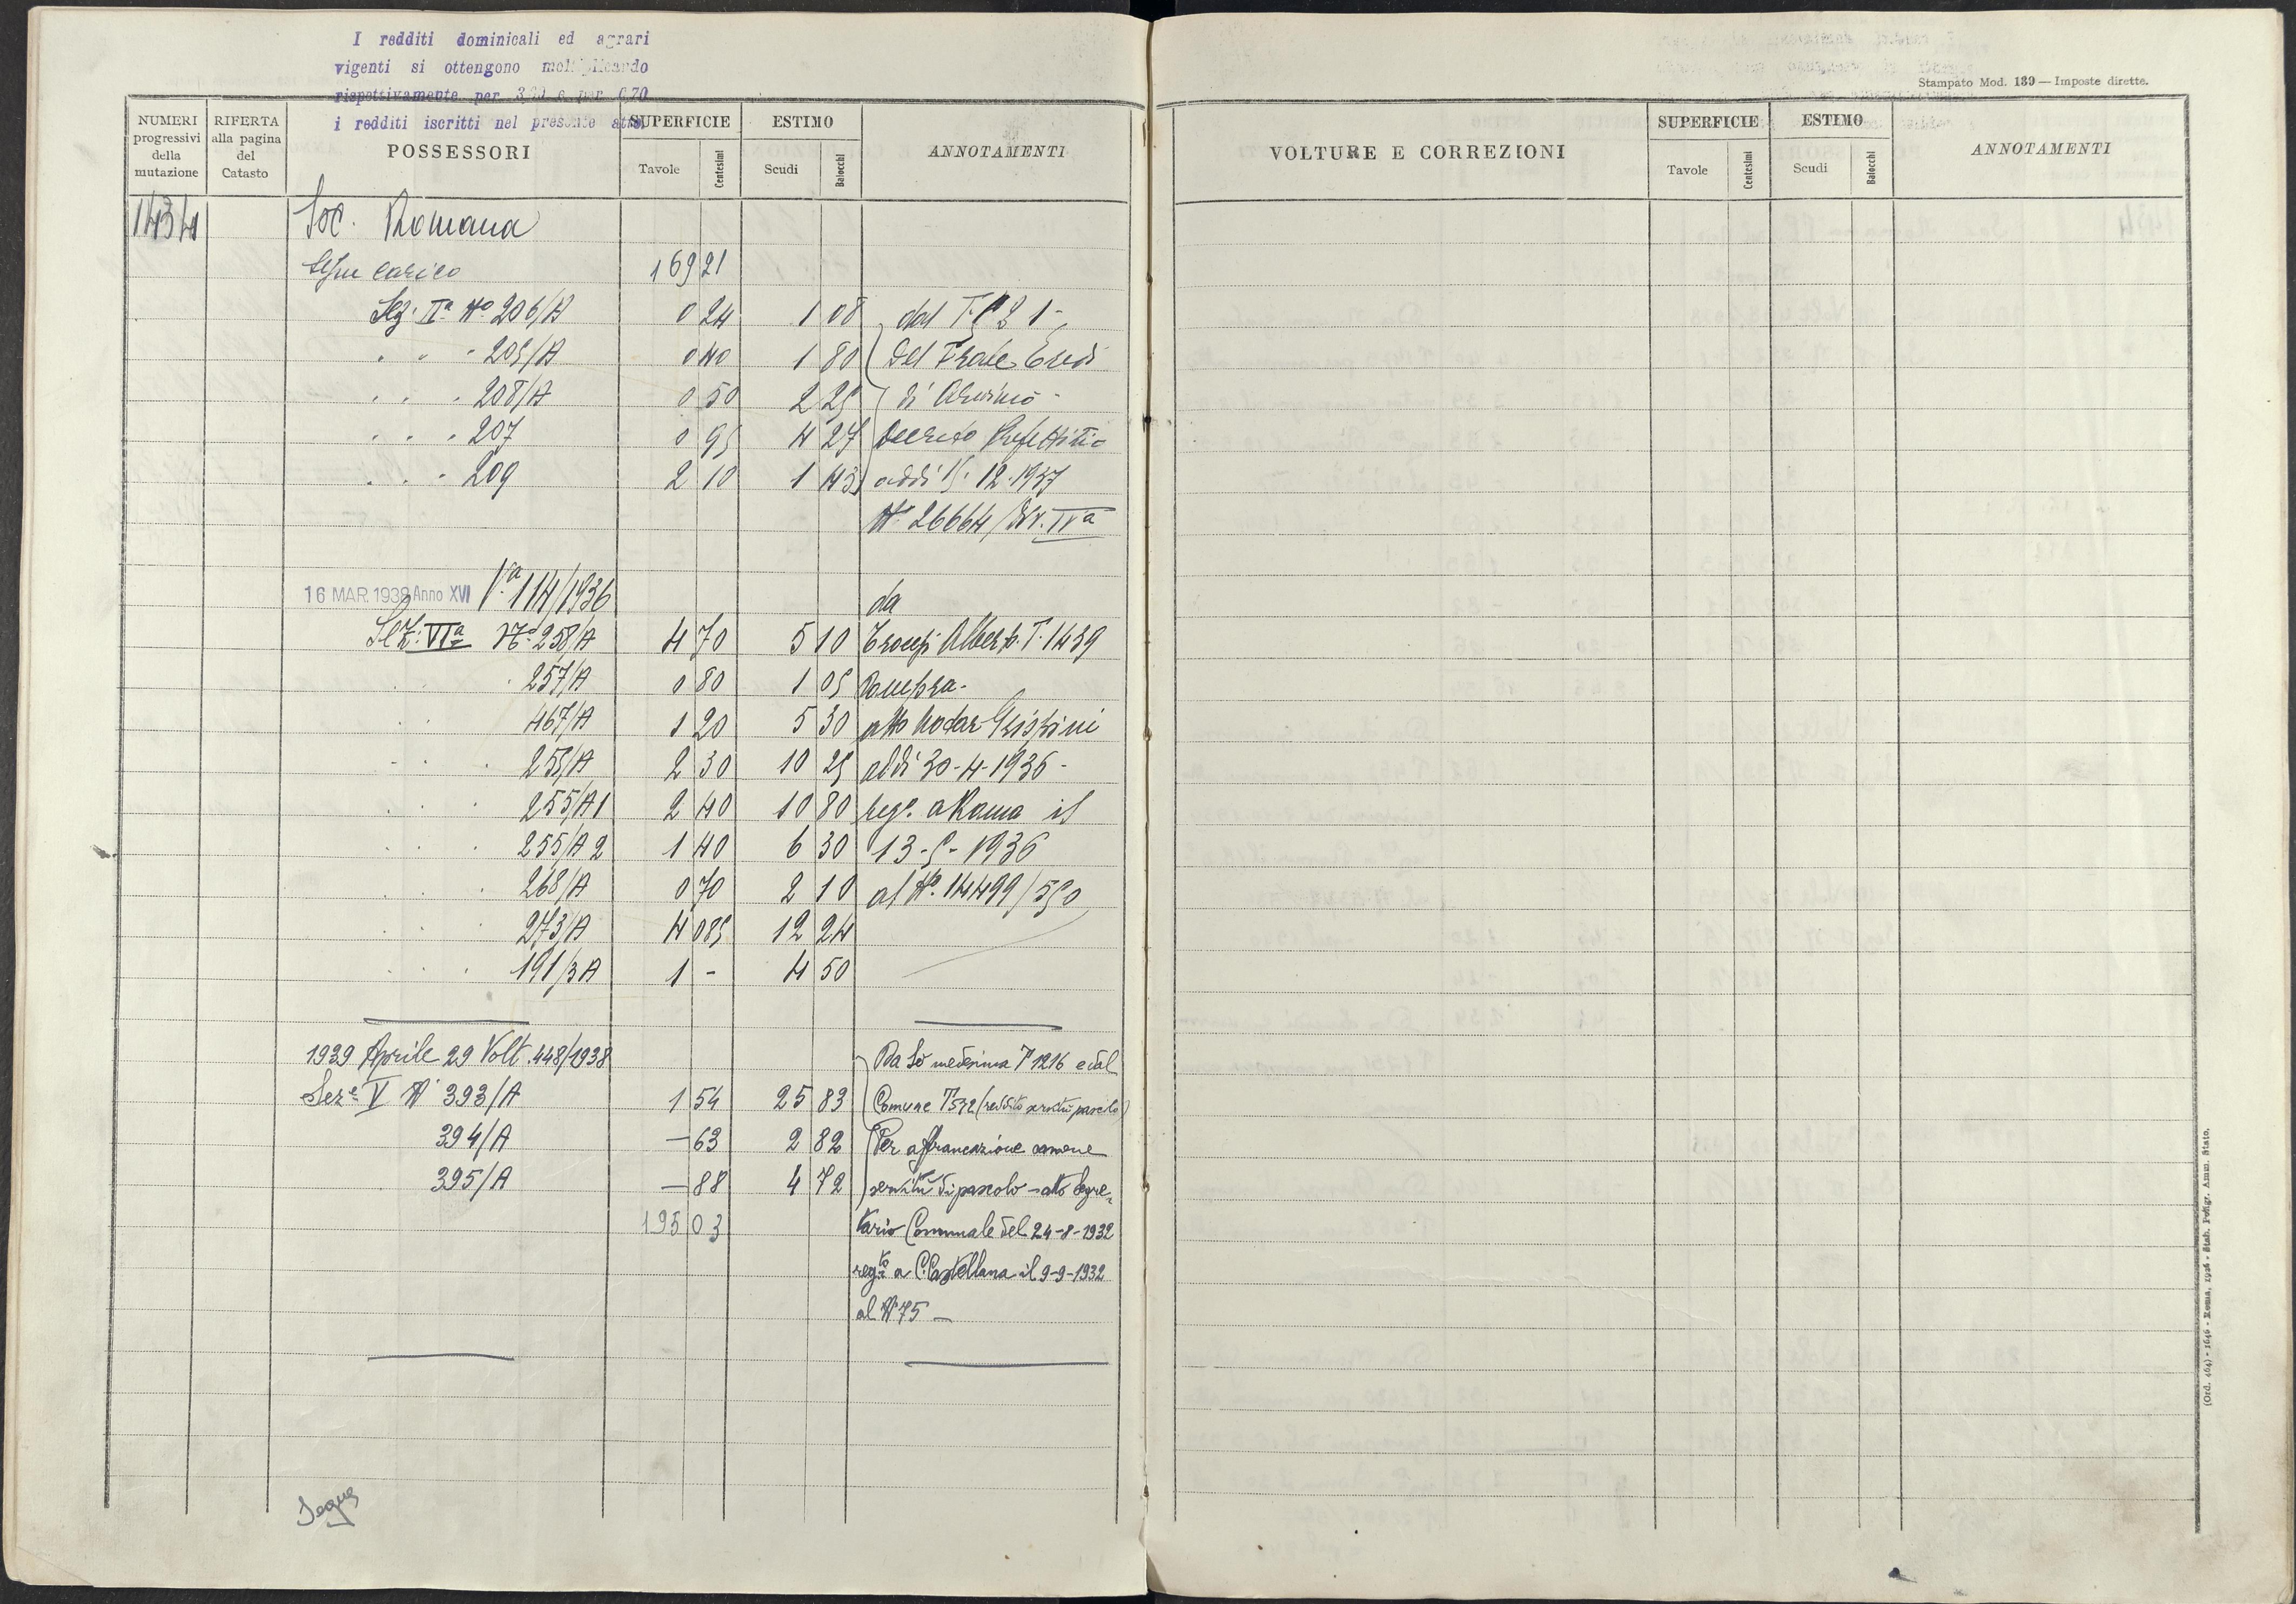 I redditi dominicali ed agrari
vigenti si ottengono moltiplicando
rispettivamente per 3,20 e per 0,70
i redditi iscritti nel presente atto.
Stampato Mod. 139 — Imposte dirette.
NUMERI progressivi della mutazione RIFERTA alla pagina del Catasto POSSESSORI SUPERFICIE Tavole Centesimi ESTIMO Scudi Baiocchi ANNOTAMENTI
VOLTURE E CORREZIONI SUPERFICIE Tavole Centesimi ESTIMO Scudi Baiocchi ANNOTAMENTI
1434 Soc. Romana
Segue carico 169 21
Sez. IIª Nº 206/A 0 24 1 08 dal T.
" " " 205/A 0 40 1 80 Del Frate Eredi
" " " 208/A 0 50 2 25 di
" " " 207 0 95 4 27 Decreto Prefettizio
" " " 209 2 10 1 43 addì 15.12.1937
Nº 26664/Div. IVª
16 MAR. 1938 Anno XVI Vª 114/1936 da
Sez. VIª Nº 258/A 4 70 5 10 Crocepi Alberto T. 1439
257/A 0 80 1 05 Compra.
467/A 1 20 5 30 atto Notar Grispini
253/A 2 30 10 25 addì 30-4-1936-
255/A1 2 40 10 80 reg. a Roma il
255/A2 1 40 6 30 13-5-1936
268/A 0 70 2 10 al Nº. 14499/550
273/A 4 085 12 24
191/3A 1 - 4 50
1939 Aprile 29 Volt. 448/1938 Da sè medesima T 1216 e dal
Sezᵉ V Nº 393/A 1 54 25 83 Comune T532 (reddito servitù pascolo)
394/A — 63 2 82 Per affrancazione
395/A — 88 4 72 servitù di pascolo - atto Segre-
195 03 tario Comunale del 24-8-1932
regᵗᵒ a C. Castellana il 9-9-1932
al Nº 75 —
Segue
(Ord. 464) - 1646 - Roma, 1936 - Stab. Poligr. Amm. Stato.